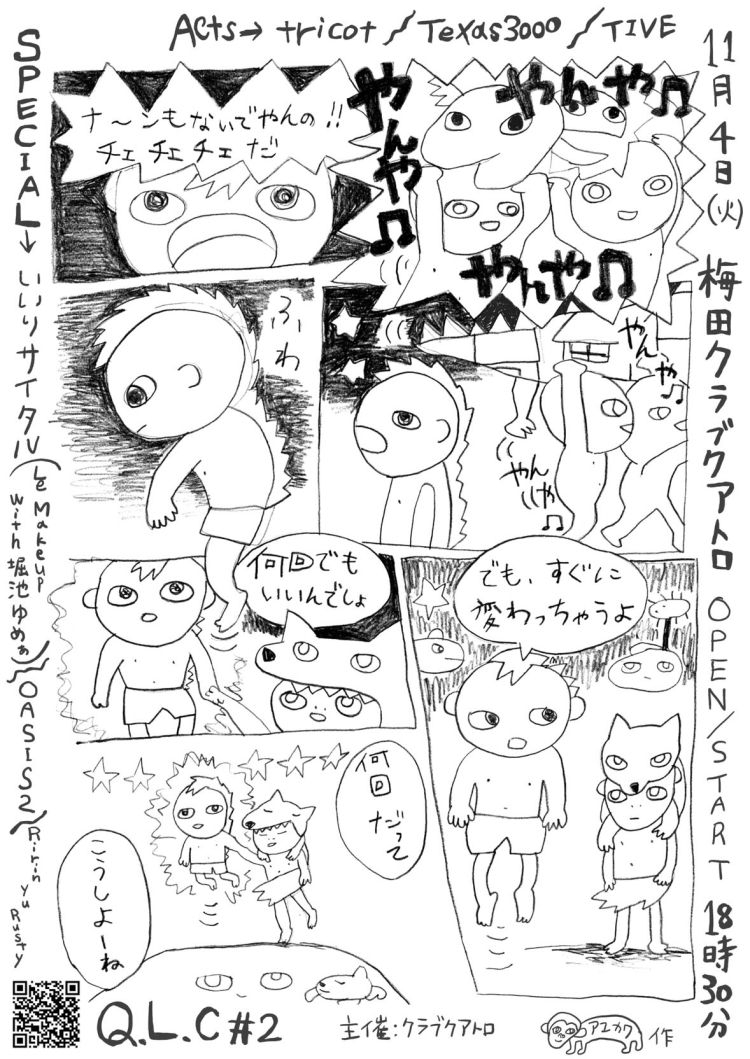 Acts→ tricot / Texas3000 / TIVE
11月4日(火) 梅田クラブクアトロ OPEN/START 18時30分
SPECIAL→ いいリサイタル(Le Makeup with 堀池ゆめぁ)/OASIS2/Ririn Yu Rusty
やんややんや♫
やんや♫
やんや♫
ナ〜ンもないでやんの!!
チェ チェ チェ だ
やんや♫
やんや♫
ふわ
何回でも
いいんでしょ
でも、すぐに
変わっちゃうよ
何回だって
こうしよーね
Q.L.C #2
主催:クラブクアトロ
アエカワ 作